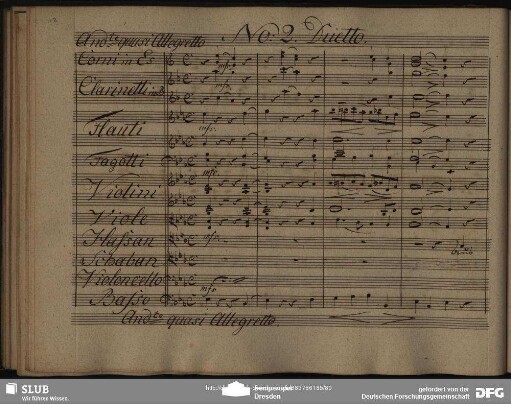 And.te quasi Allegretto No: 2. Duetto.
Corni in Es
Clarinetti in B
Flauti
Fagotti
Violini
Viole
Hassan
Schaban
Violoncello
Basso
And.te quasi Allegretto.
SLUB
Wir führen Wissen.
Dresden
gefördert von der
Deutschen Forschungsgemeinschaft
DFG